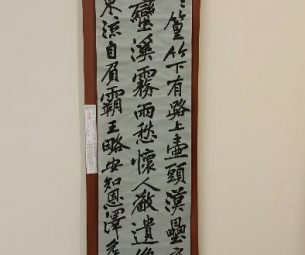 篁竹下有路上壺頭漢壘
蠻溪霧雨愁懷人敬遺
東流自負霸王略安知恩澤